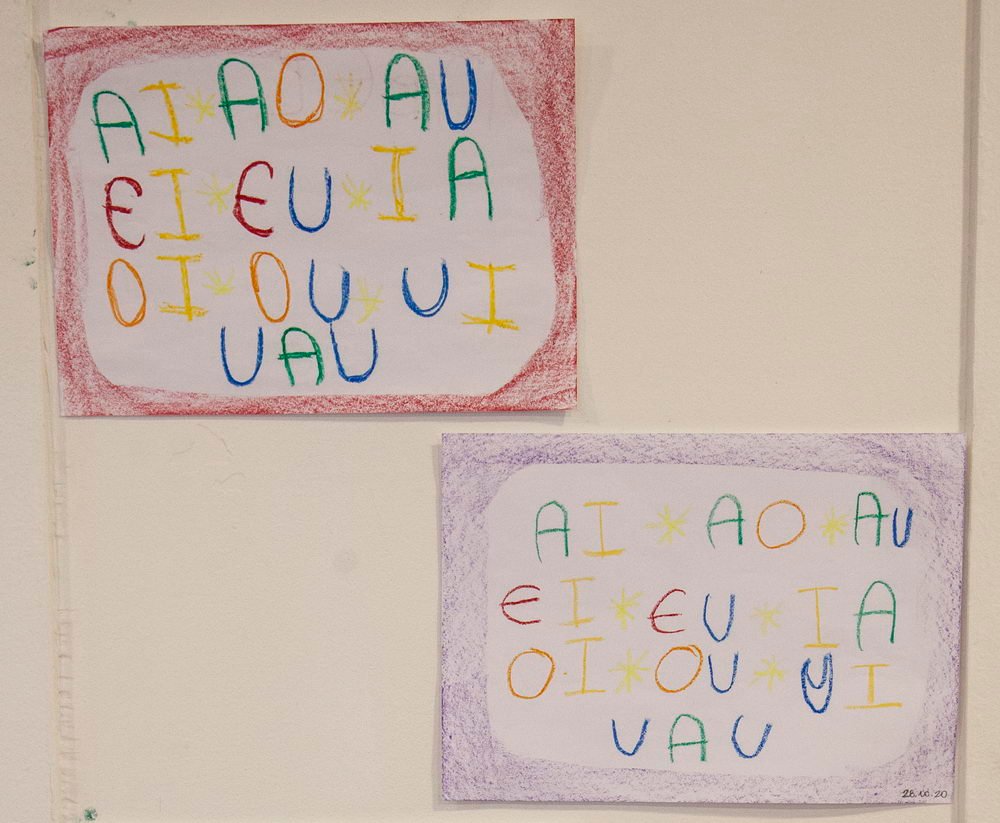 AI * AO * AU
EI * EU * IA
OI * OU * UI
UAU
AI * AO * AU
EI * EU * IA
OI * OU * UI
UAU